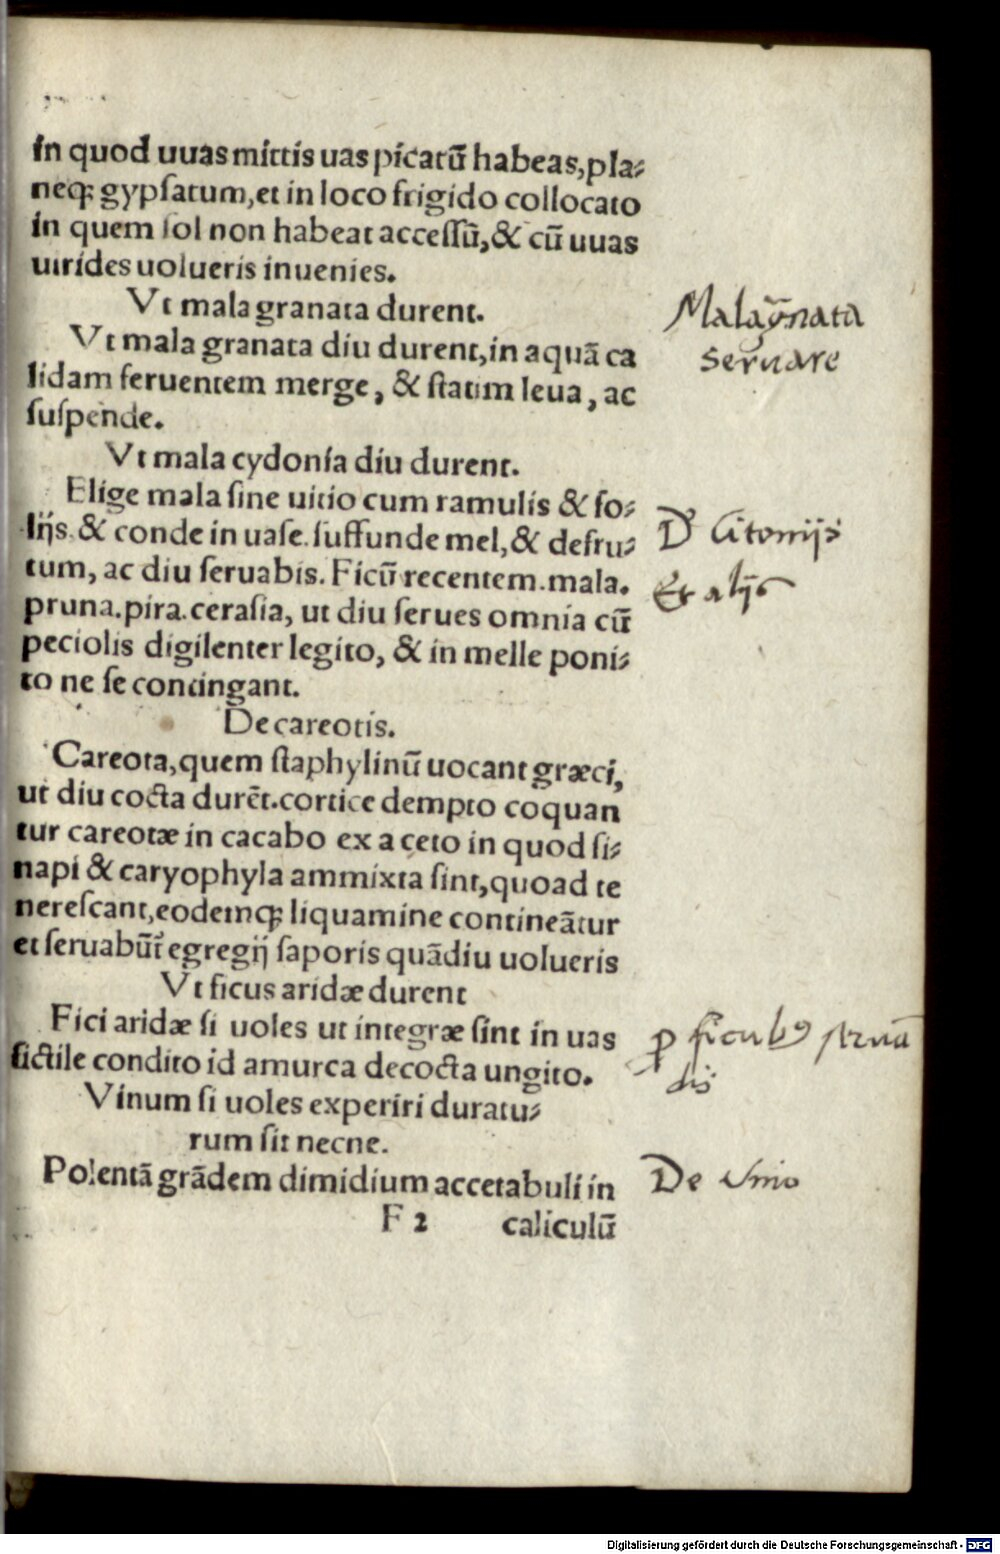 in quod uuas mittis uas picatū habeas, pla⸗
neq; gypſatum, et in loco frigido collocato
in quem ſol non habeat acceſſū, & cū uuas
uirides uolueris inuenies.
Vt mala granata durent.
Malagr̄nata
seruare
Vt mala granata diu durent, in aquā ca
lidam feruentem merge, & ſtatim leua, ac
ſuſpende.
Vt mala cydonia diu durent.
Elige mala ſine uitio cum ramulis & fo⸗
lijs. & conde in uaſe. ſuffunde mel, & defru⸗
D' Citonijs
tum, ac diu ſeruabis. Ficū recentem. mala.
Et alijs
pruna. pira. ceraſia, ut diu ſerues omnia cū
peciolis digilenter legito, & in melle poni⸗
to ne ſe contingant.
De careotis.
Careota, quem ſtaphylinū uocant græci,
ut diu cocta durēt. cortice dempto coquan
tur careotæ in cacabo ex aceto in quod ſi⸗
napi & caryophyla ammixta ſint, quoad te
nereſcant, eodemq; liquamine contineātur
et ſeruabūt̄ egregij ſaporis quādiu uolueris
Vt ficus aridæ durent
Fici aridæ ſi uoles ut integræ ſint in uas
ꝓ ficubꝰ ſeruā
dis
fictile condito id amurca decocta ungito.
Vinum ſi uoles experiri duratu⸗
rum ſit necne.
Polentā grādem dimidium accetabuli in
De Vino
F 2 caliculū
Digitalisierung gefördert durch die Deutsche Forschungsgemeinschaft - DFG